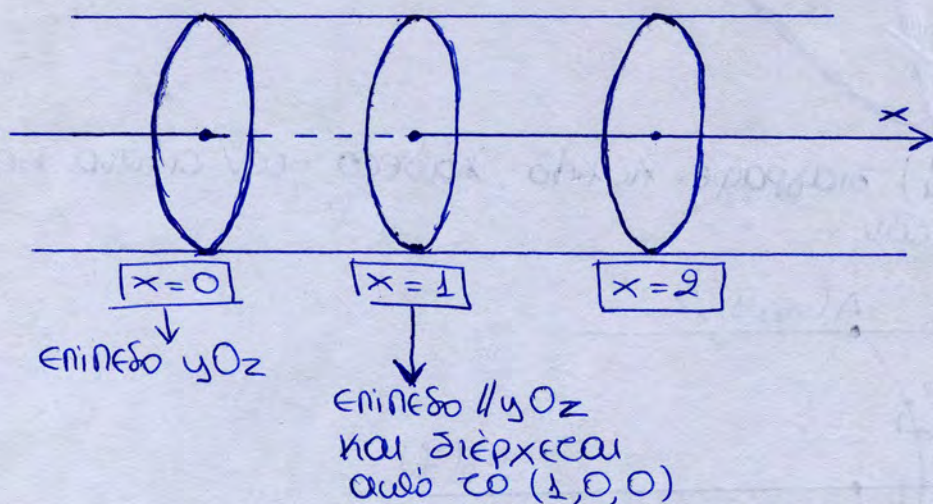 x
x=0
x=1
x=2
επίπεδο yOz
επίπεδο //yOz
και διέρχεται
από το (1,0,0)